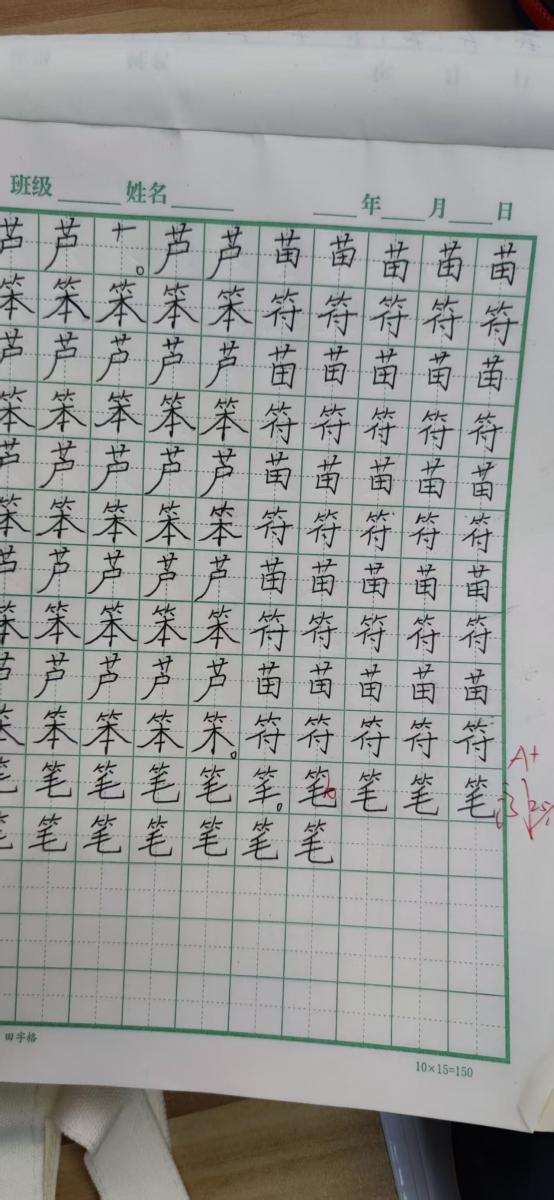 班级 姓名 年 月 日
芦 芦 。 芦 芦 苗 苗 苗 苗 苗
笨 笨 笨 笨 笨 符 符 符 符 符
芦 芦 芦 芦 芦 苗 苗 苗 苗 苗
笨 笨 笨 笨 笨 符 符 符 符 符
芦 芦 芦 芦 芦 苗 苗 苗 苗 苗
笨 笨 笨 笨 笨 符 符 符 符 符
芦 芦 芦 芦 芦 苗 苗 苗 苗 苗
笨 笨 笨 笨 笨 符 符 符 符 符
芦 芦 芦 芦 芦 苗 苗 苗 苗 苗
笨 笨 笨 笨 。 符 符 符 符 符
A+
笔 笔 笔 笔 笔 。 笔 笔 笔 笔
笔 笔 笔 笔 笔 笔 笔
田字格
10×15=150